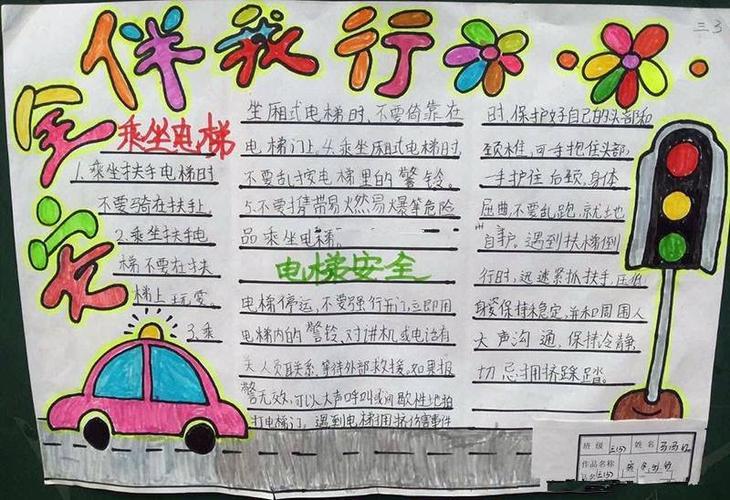 安全伴我行
三3
乘坐电梯
1.乘坐扶手电梯时
不要骑在扶手上
2.乘坐扶手电
梯不要在扶
梯上玩耍。
3.乘
坐厢式电梯时,不要倚靠在
电梯门上。4.乘坐厢式电梯时,
不要乱按电梯里的警铃。
5.不要携带易火然易火爆等危险
品乘坐电梯。
电梯安全
电梯停运,不要强行开门,立即用
电梯内的警铃、对讲机或电话有
关人员联系,等待外部救援,如果报
警无效,可以大声呼叫或间歇性地拍
打电梯门。遇到电梯拥挤伤害事件
时,保护好自己的头部和
颈椎,可一手抱住头部,
一手护住后颈,身体
屈曲,不要乱跑,就地
自护。遇到扶梯倒
行时,迅速紧抓扶手,压低
身姿保持稳定,并和周围人
大声沟通,保持冷静,
切忌拥挤踩踏。
班级 三(3) 姓名
作品名称
三(3)